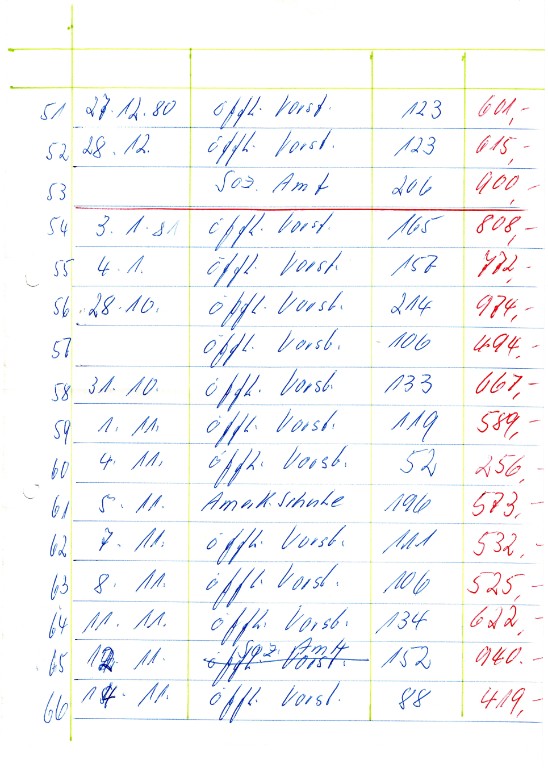 51 27.12.80 öfftl. Vorst. 123 601,-
52 28.12. öfftl. Vorst. 123 615,-
53 Soz. Amt 206 900,-
54 3.1.81 öfftl. Vorst. 165 808,-
55 4.1. öfftl. Vorst. 157 772,-
56 28.10. öfftl. Vorst. 214 974,-
57 öfftl. Vorst. 106 494,-
58 31.10. öfftl. Vorst. 133 667,-
59 1.11. öfftl. Vorst. 119 589,-
60 4.11. öfftl. Vorst. 52 256,-
61 5.11. Amerik. Schule 196 573,-
62 7.11. öfftl. Vorst. 111 532,-
63 8.11. öfftl. Vorst. 106 525,-
64 11.11. öfftl. Vorst. 134 622,-
65 12.11. Soz. Amt 152 940.-
66 14.11. öfftl. Vorst. 88 419,-